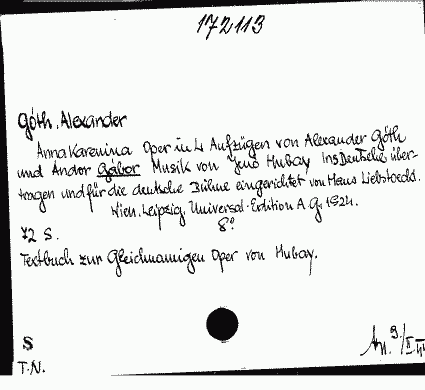 172113
Góth, Alexander
Anna Karenina Oper in 4 Aufzügen von Alexander Góth
und Andor Gábor Musik von Jenö Hubay Ins Deutsche über-
tragen und für die deutsche Bühne eingerichtet von Hans Liebstoeckl.
Wien, Leipzig, Universal-Edition A.G. 1924.
8°
72 S.
Textbuch zur Gleichnamigen Oper von Hubay.
S
T.N.